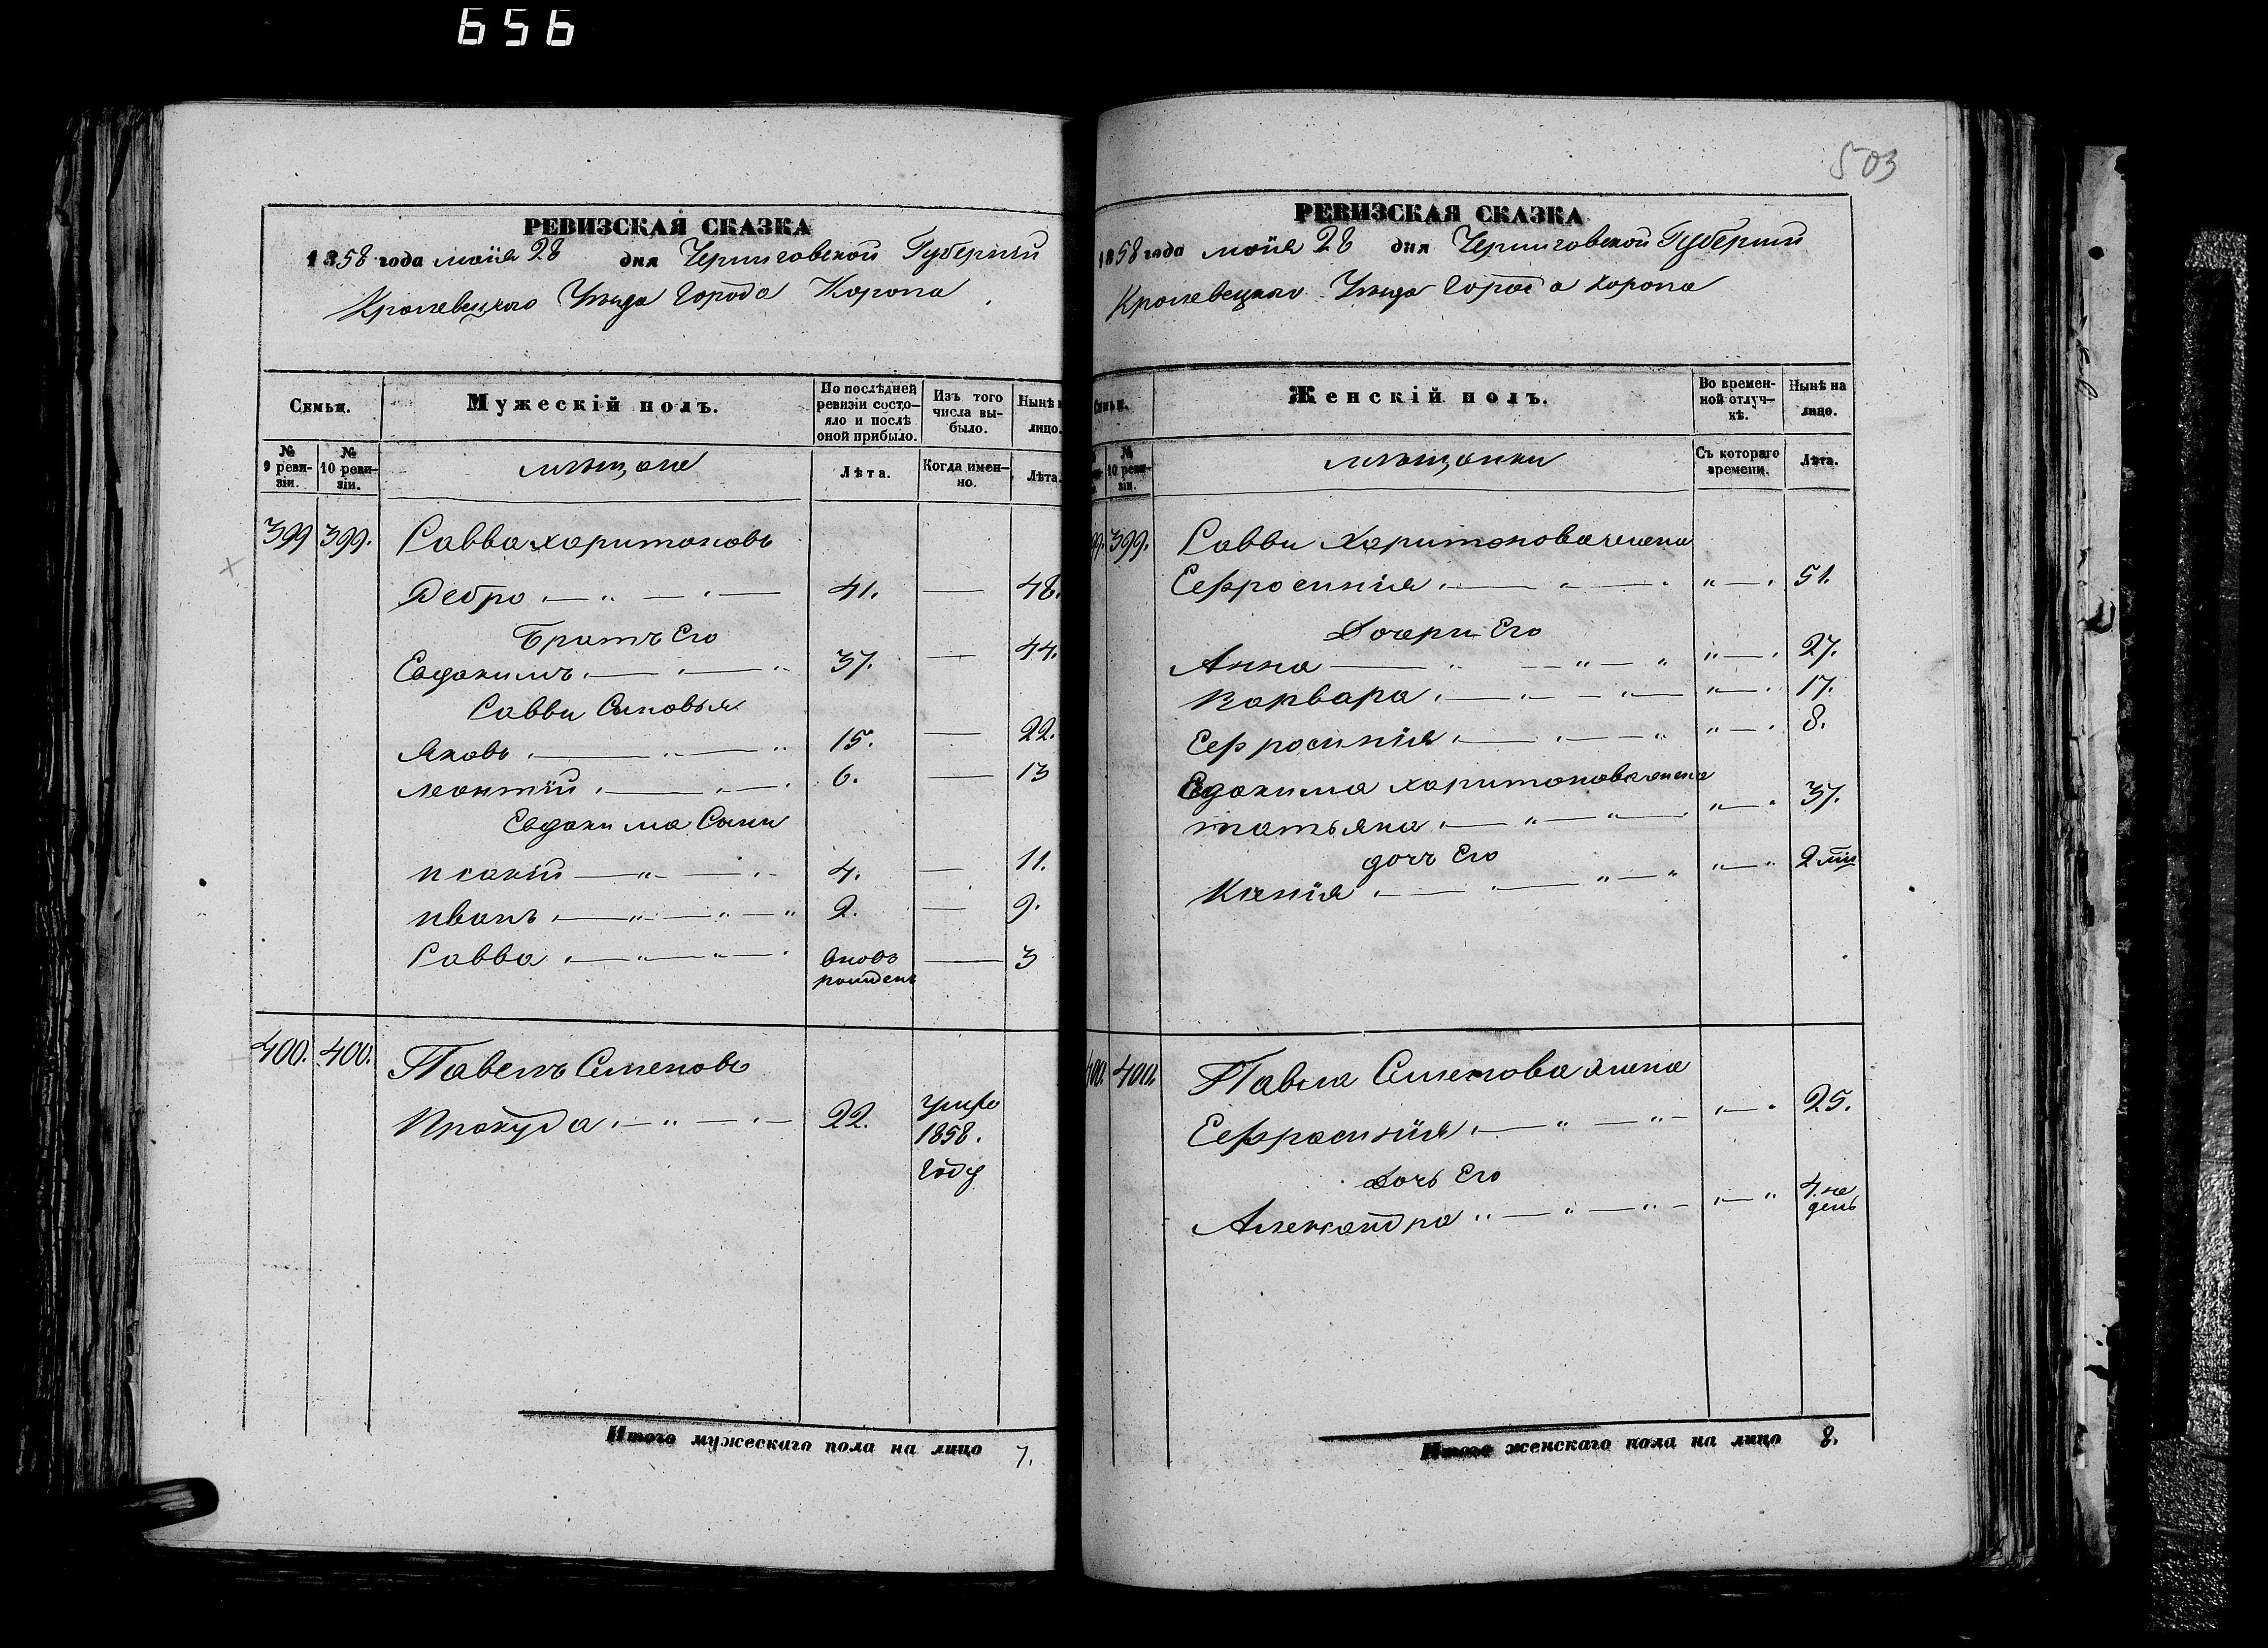 656
РЕВИЗСКАЯ СКАЗКА
1858 года маія 28 дня Черниговской Губерніи
Кролевецкаго Уѣзда Города Коропа
Семьи.
Мужескій полъ.
По послѣдней ревизіи состояло и послѣ оной прибыло.
Изъ того числа выбыло.
Нынѣ н
лицо.
№ 9 ревизіи.
№ 10 ревизіи.
мѣщане
Лѣта.
Когда именно.
Лѣта.
399 399. Савва Харитоновъ
Дебро 41. — 48.
Братъ Его
Евдокимъ 37. — 44.
Саввы Сыновья
Яковъ 15. — 22.
Леонтій 6. — 13
Евдокима Сыны
Исакій 4. — 11.
Иванъ 2. — 9.
Савва вновь рожденъ — 3
400. 400. Павелъ Семеновъ
Прокуда 22.
1858.
году
Итого мужескаго пола на лицо 7.
503
РЕВИЗСКАЯ СКАЗКА
1858 года маія 28 дня Черниговской Губерніи
Кролевецкаго Уѣзда Города Коропа
Семьи.
Женскій полъ.
Во временной отлучкѣ.
Нынѣ на лицо.
№ 10 ревизіи.
мѣщанки
Съ котораго времени.
Лѣта.
99. 399. Саввы Харитонова жена
Ефросинія 51.
Дочери Его
Анна 27.
Варвара 17.
Ефросинія 8.
Евдокима Харитонова жена
Татьяна 37.
дочь Его
Ксенія 2
400. 400. Павла Семенова жена
Ефросинія 25.
Дочь Его
Александра 4. не
дель
Итого женскаго пола на лицо 8.